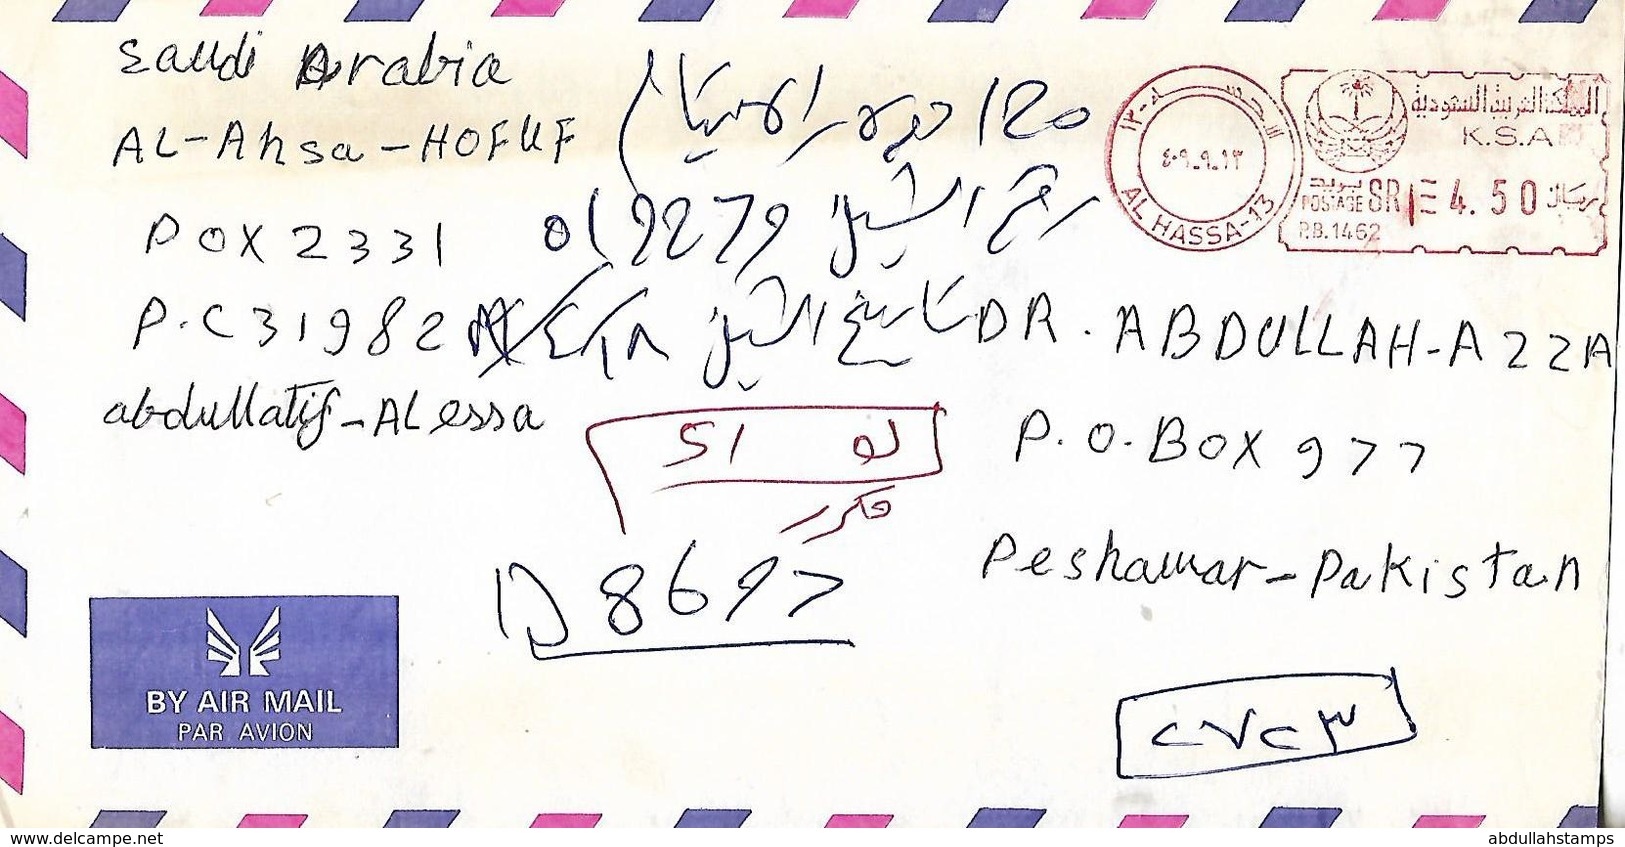 Saudi Arabia
AL-Ahsa-HOFUF
POX 2331
P.C 31982
abdullatif-ALessa
رقم الشيك 019279
تاريخ الشيك
DR. ABDULLAH-AZZA
P.O.BOX 977
Peshawar-Pakistan
51
مكرر
8697
٢٧٢٣
BY AIR MAIL
PAR AVION
AL HASSA-13
٤٠٩_٩_١٣
المملكة العربية السعودية
K.S.A
بريد
POSTAGE SR 4.50 ريال
P.B.1462
www.delcampe.net
abdullahstamps